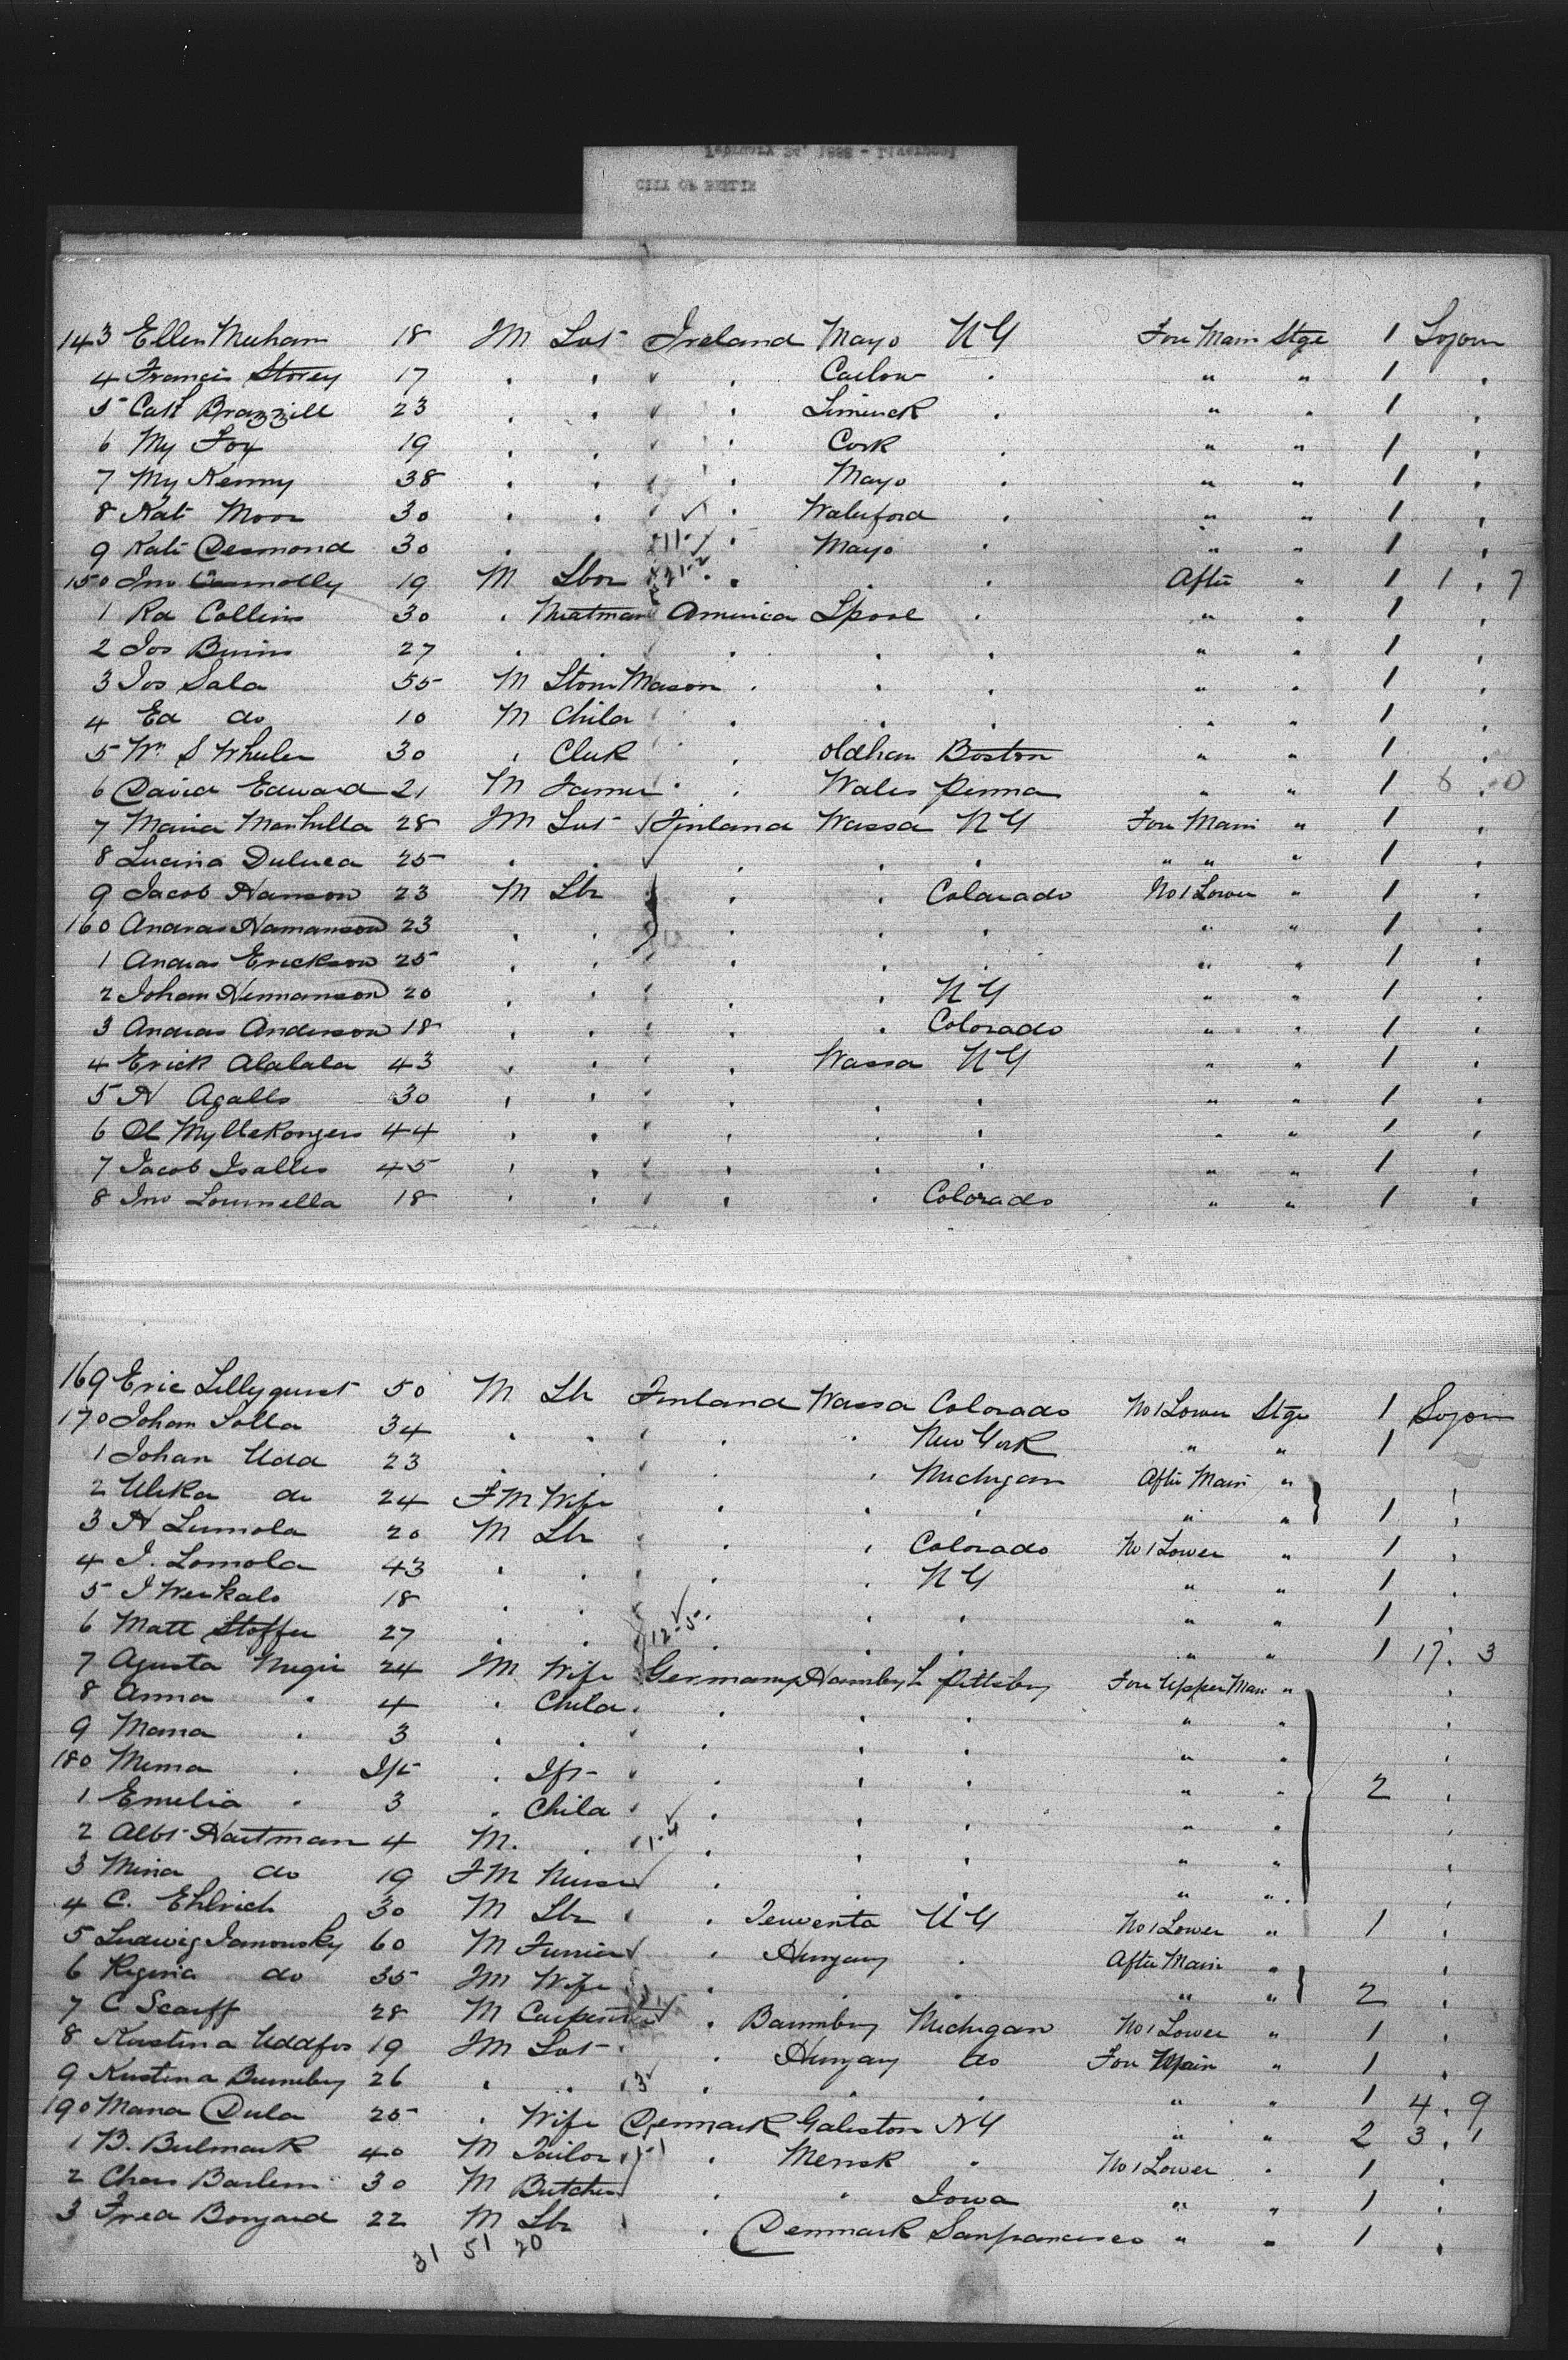 143 Ellen Meehan 18 FM Svt Ireland Mayo NY Fore Main Stge 1 Sojorn
4 Francis Storey 17 . . . . Carlow . " " 1 .
5 Cath Brazzill 23 . . . . Limerick . " " 1 .
6 My Fox 19 . . . . Cork . " " 1 .
7 My Kenny 38 . . . . Mayo . " " 1 .
8 Kate Moor 30 . . . . Waterford . " " 1 .
9 Kate Desmond 30 . 11-7 . Mayo . " " 1 .
150 Jno Connolly 19 M Lbor 21-2 . . . After " 1 1 . 7
1 Rd Collins 30 . Meatman America Lpool . " " 1 .
2 Jos Burns 27 . . . . . " " 1 .
3 Jos Sala 55 M Stone Mason . . . " " 1 .
4 Ed do 10 M Child . . . " " 1 .
5 Wm S Wheeler 30 . Clerk . Oldham Boston " " 1 .
6 David Edward 21 M Farmer . Wales Penna " " 1 6 . 0
7 Maria 28 FM Svt Finland Wassa NY Fore Main " 1 .
8 Lucina 25 . . . . . " " " 1 .
9 Jacob Hanson 23 M Lbr . . Colorado No 1 Lower " 1 .
160 Andras Hamanson 23 . . . . . " " 1 .
1 Andras Erickson 25 . . . . . " " 1 .
2 Johan Hermanson 20 . . . . NY " " 1 .
3 Andras Anderson 18 . . . . Colorado " " 1 .
4 Erick Alalala 43 . . . Wassa NY " " 1 .
5 H Agalls 30 . . . . . " " 1 .
6 44 . . . . . " " 1 .
7 Jacob Isalles 45 . . . . . " " 1 .
8 Jno Lounella 18 . . . . Colorado " " 1 .
169 Eric Lillyqurst 50 M Lbr Finland Wassa Colorado No 1 Lower Stge 1 Sojorn
170 Johan Solla 34 . . . . New York " " 1
1 Johan Udd 23 . . . . Michigan After Main "
2 Ulika do 24 FM Wife . . . " " 1 .
3 H Lumola 20 M Lbr . . Colorado No 1 Lower " 1 .
4 J. Lomola 43 . . . . NY " " 1 .
5 J Werkalo 18 . . . . . " " 1 .
6 Matt Stoffer 27 . . 12-5 . . . " " 1 17 . 3
7 Agusta 24 FM Wife Germany Hamburg Pittsburg Fore Upper Main " .
8 Anna . 4 . Child . . . " " .
9 Maria . 3 . . . . . " " .
180 Mima . Ift . Ift . . . " " 2 .
1 Emelia . 3 . Child . . . " " .
2 Albt Hartman 4 M . 1-4 . . . " " .
3 Mina do 19 FM Nurse . . . " " .
4 C. Ehlrich 30 M Lbr . NY No 1 Lower " 1 .
5 Ludwig Janowsky 60 M . Hungary . After Main " .
6 Regina do 35 FM Wife . . . " " 2 .
7 C Scarff 28 M Carpenter . Michigan No 1 Lower " 1 .
8 Kristina 19 FM Svt . . Hungary do Fore Main " 1 .
9 Kristina 26 . . 3 . . . " " 1 4 . 9
190 Maria Dula 25 . Wife Denmark Galeston NY " " 2 3 . 1
1 B. Bulmark 40 M Tailor 1-1 . Mensk . No 1 Lower . 1 .
2 Chas Barlem 30 M Butcher . " Iowa " " 1 .
3 Fred Bongard 22 M Lbr . Denmark Sanfrancisco " " 1 .
31 51 20